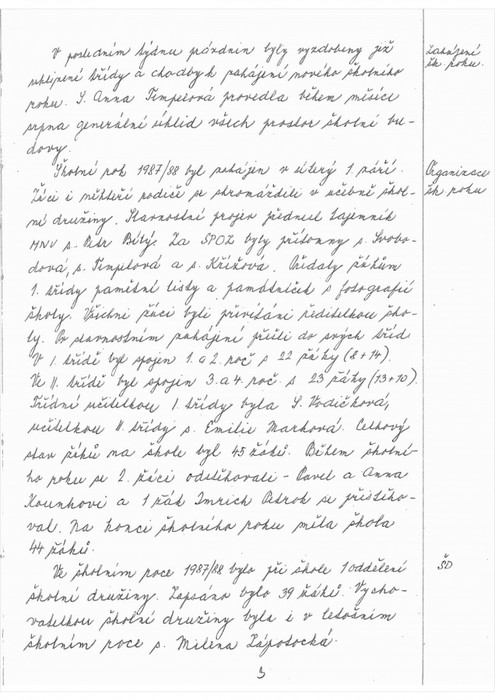 V posledním týdnu prázdnin byly vyzdobeny již
uklizené třídy a chodby k zahájení nového školního
roku. S. Anna Timplová provedla během měsíce
srpna generální úklid všech prostor školní bu-
dovy.
Zahájení
šk. roku.
Školní rok 1987/88 byl zahájen v úterý 1. září.
Žáci i někteří rodiče se shromáždili v učebně škol-
né družiny. Slavnostní projev přednesl tajemník
MNV s. Petr Bílý. Za SPOZ byly přítomny s. Svobo-
dová, s. Timplová a s. Křížová. Předaly žákům
1. třídy pamětní listy a památníček s fotografií
školy. Všichni žáci byli přivítáni ředitelkou ško-
ly. Po slavnostním zahájení přešli do svých tříd.
V I. třídě byl spojen 1. a 2. roč. s 22 žáky (8+14).
Ve II. třídě byl spojen 3. a 4. roč. s 23 žáky (13+10).
Třídní učitelkou I. třídy byla S. Vodičková,
učitelkou II. třídy s. Emilie Marková. Celkový
stav žáků na škole byl 45 žáků. Během školní-
ho roku se 2. žáci odstěhovali - Pavel a Anna
a 1 žák Imrich se přistěho-
val. Na konci školního roku měla škola
44 žáků.
Organizace
šk. roku
Ve školním roce 1987/88 bylo při škole 1 oddělení
školní družiny. Zapsáno bylo 39 žáků. Vycho-
vatelkou školní družiny byla i v letošním
školním roce s. Milena Zápotocká.
ŠD
3